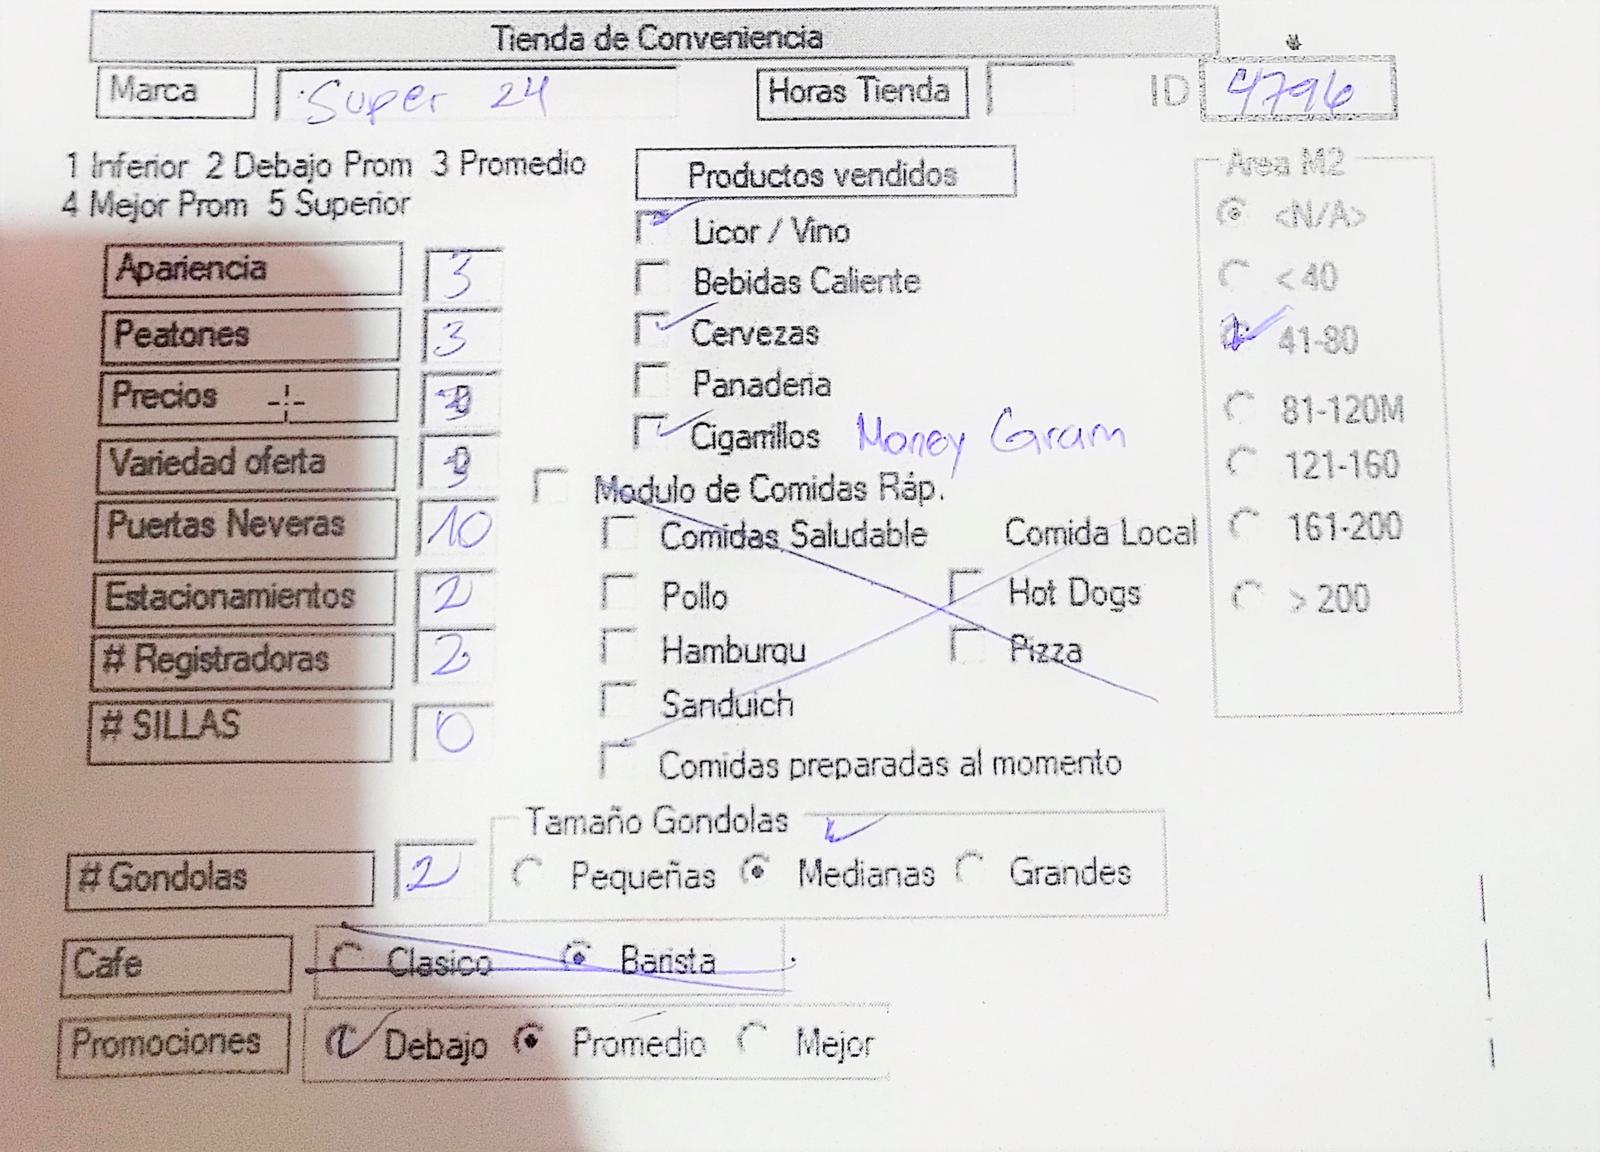 Tienda de Conveniencia
Marca Super 24 Horas Tienda ID 4796
1 Inferior 2 Debajo Prom 3 Promedio
4 Mejor Prom 5 Superior
Productos vendidos
Licor / Vino
Bebidas Caliente
Cervezas
Panaderia
Cigarrillos Money Gram
Modulo de Comidas Ráp.
Comidas Saludable Comida Local
Pollo Hot Dogs
Hamburqu Pizza
Sanduich
Comidas preparadas al momento
Area M2
<N/A>
<40
41-80
81-120M
121-160
161-200
> 200
Apariencia 3
Peatones 3
Precios
Variedad oferta
Puertas Neveras 10
Estacionamientos 2
# Registradoras 2
# SILLAS 0
Tamaño Gondolas
# Gondolas 2 Pequeñas Medianas Grandes
Cafe Clasico Barista
Promociones Debajo Promedio Mejor